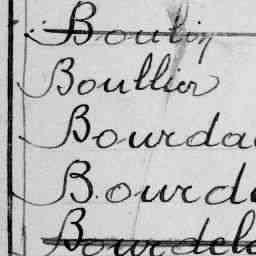 Boutin
Boullier
Bourda
Bourd
Bourdel